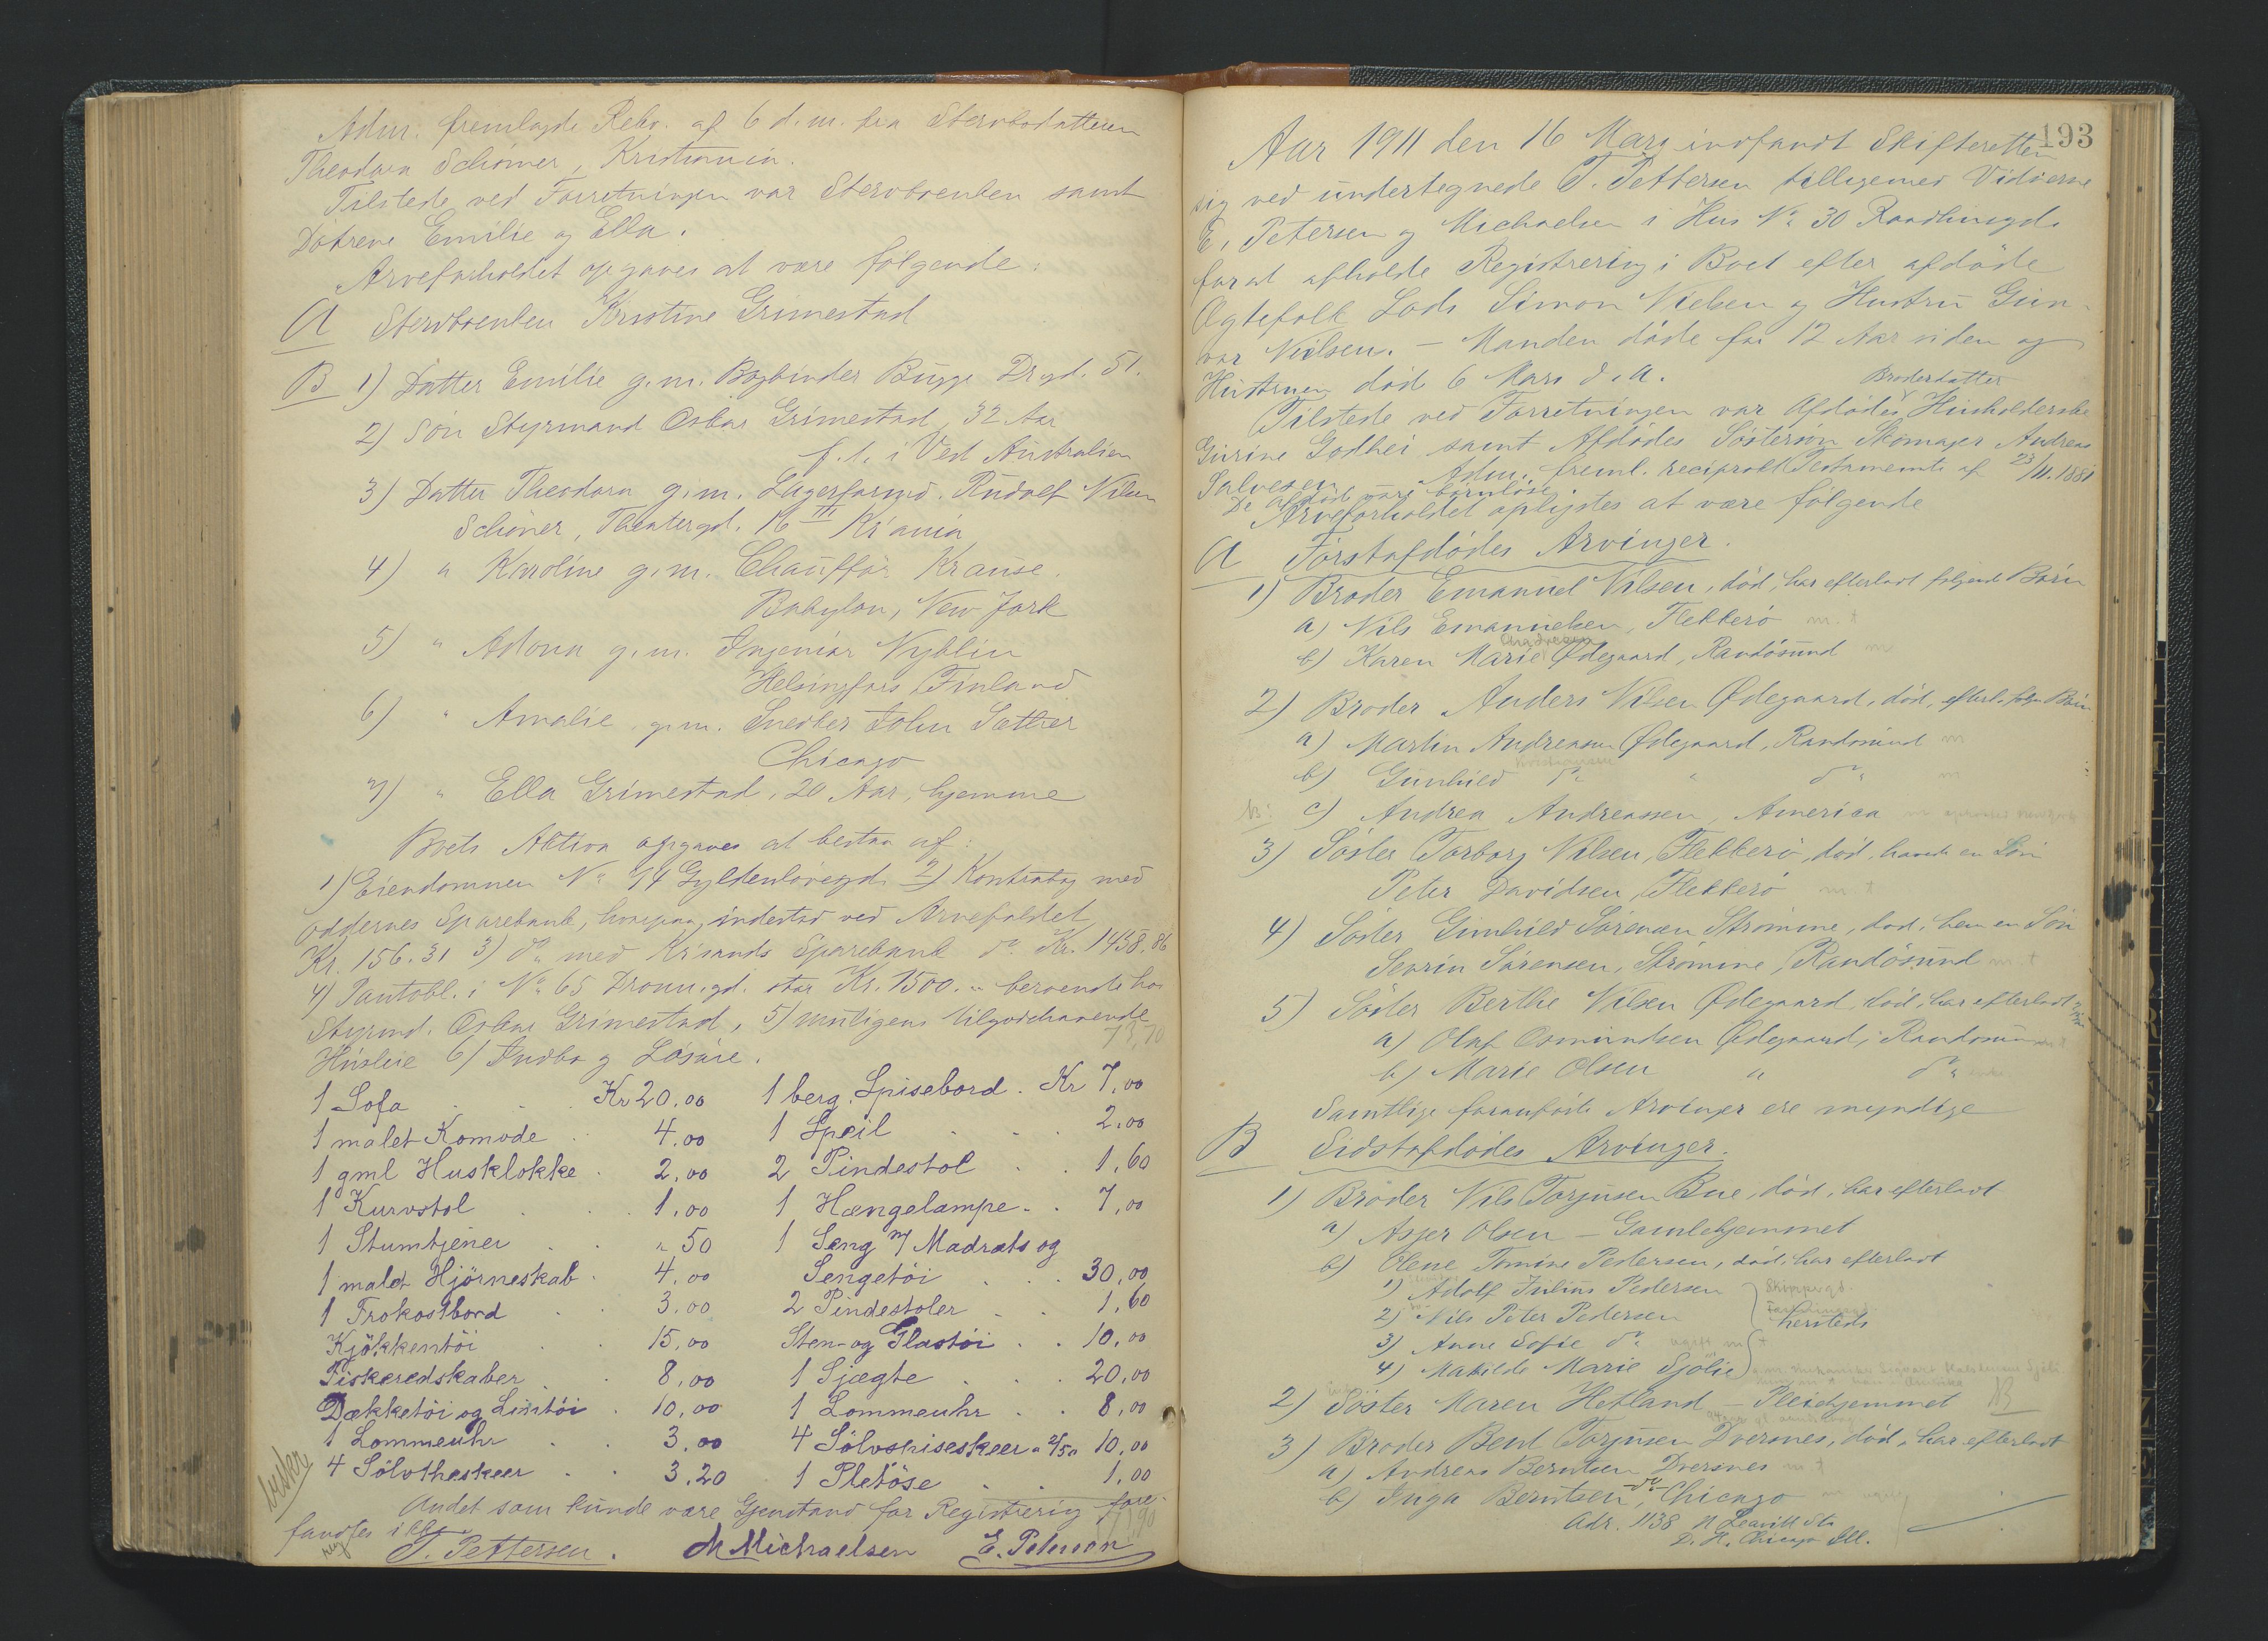 Adm. fremlagde Rekv. af 6 d.m. fra Stervbodatteren
Theodora Schöner, Kristiania.
Tilstede ved Forretningen var Stervboenken samt
Døtrene Emilie og Ella.
Arveforholdet opgaves at være følgende:
A Stervboenken Kristine Grimestad
B 1) Datter Emilie g.m. Bogbinder Bugge Drgd. 51.
2) Søn Styrmand Oskar Grimestad 32 Aar
f. t. i Vest Australien
3) Datter Theodora g.m. Lagerformd. Rudolf Nilsen
Schöner, Theatergd. 16 III Kr'ania
4) " Karoline g.m. Chauffør Krause.
Babylon, New York
5) " Astona g.m. Ingeniør Nyblin
Helsingfors, Finland
6) " Amalie g.m. Snedker John Sæther
Chicago
7) " Ella Grimestad, 20 Aar, hjemme
Boets Aktiva opgaves at bestaa af:
1) Eiendommen No 14 Gyldenløvesgd. 2) Kontrabog med
Oddernes Sparebank, hvorpaa indestod ved Arvefaldet
Kr. 156.31 3) do med Kr'sands Sparebank do Kr. 1458.86
4) Pantobl. i No 65 Dronn.gd. stor Kr. 1500.- beroende hos
Styrmd. Oskar Grimestad, 5) muligens tilgodehavende
73,70
Husleie 6) Indbo og Løsøre.
1 Sofa Kr 20,00 1 berg. Spisebord. Kr 7,00
1 malet Komode 4,00 1 Speil 2,00
1 gml Husklokke 2,00 2 Pindestol 1,60
1 Kurvstol 1,00 1 Hængelampe 7,00
1 Stumtjener " 50 1 Seng m/ Madrats og
1 malet Hjörneskab 4,00 Sengetöi 30,00
1 Frokostbord 3,00 2 Pindestoler 1,60
Kjökkentöi 15,00 Sten- og Glastöi 10,00
Fiskeredskaber 8,00 1 Sjægte 20,00
Dækketöi og Lintöi 10,00 1 Lommeuhr 8,00
1 Lommeuhr 3,00 4 Sölvspiseskeer a 2/50 10,00
4 Sölvtheskeer 3,20 1 Pletöse 1,00
Andet som kunde være Gjenstand for Registrering fore-
fandtes ikke
T. Pettersen. M Michaelsen E. Petersen
193
Aar 1911 den 16 Mars indfandt Skifteretten
sig ved undertegnede T. Pettersen tilligemed Vidnerne
E. Petersen og Michaelsen i Hus No 30 Raadhusgd.
for at afholde Registrering i Boet efter afdøde
Ægtefolk Lods Simon Nielsen og Hustru Gun-
vor Nielsen. - Manden døde for 12 Aar siden og
Hustruen døde 6 Mars d.A.
Broderdatter
Tilstede ved Forretningen var Afdødes Husholderske
Gurine Godhei samt Afdødes Søstersøn Skomager Andreas
Salvesen. Adm. freml. reciprokt Testamente af 23/11.1881
De afdøde vare børnløse
Arveforholdet oplystes at være følgende
A Førstafdødes Arvinger.
1) Broder Emanuel Nilsen, død, har efterladt følgende Børn
a) Nils Emanuelsen, Flekkerø
b) Karen Marie Ødegaard, Randøsund
2) Broder Anders Nilsen Ødegaard, død, efterl. følg. Børn
a) Martin Andreasen Ødegaard, Randøsund
b) Gunhild do " do
c) Andrea Andreassen, America
3) Søster Torborg Nilsen, Flekkerø, død, havde en Søn
Peter Davidsen, Flekkerø
4) Søster Gunhild Sørensen Strømme, død, har en Søn
Severin Sørensen, Strømme, Randøsund
5) Søster Berthe Nilsen Ødegaard, død, har efterladt
a) Olaf Osmundsen Ødegaard, Randøsund
b) Marie Olsen " do
Samtlige foranførte Arvinger ere myndige
B Sidstafdødes Arvinger.
1) Broder Nils Torjusen Bue, død, har efterladt
a) Asjer Olsen - Gamlehjemmet
b) Olene Tomine Pedersen, død, har efterladt
1) Adolf Julius Pedersen
2) Nils Peter Pedersen
hersteds
3) Anne Sofie do
4) Matilde Marie Sjølie
2) Søster Maren Hetland - Pleiehjemmet
3) Broder Bent Torjusen Dversnes, død, har efterladt
a) Andreas Berntsen Dversnes
b) Inga Berntsen, Chicago
Adr. 1138 N Leavitt Str
Chicago Ill.